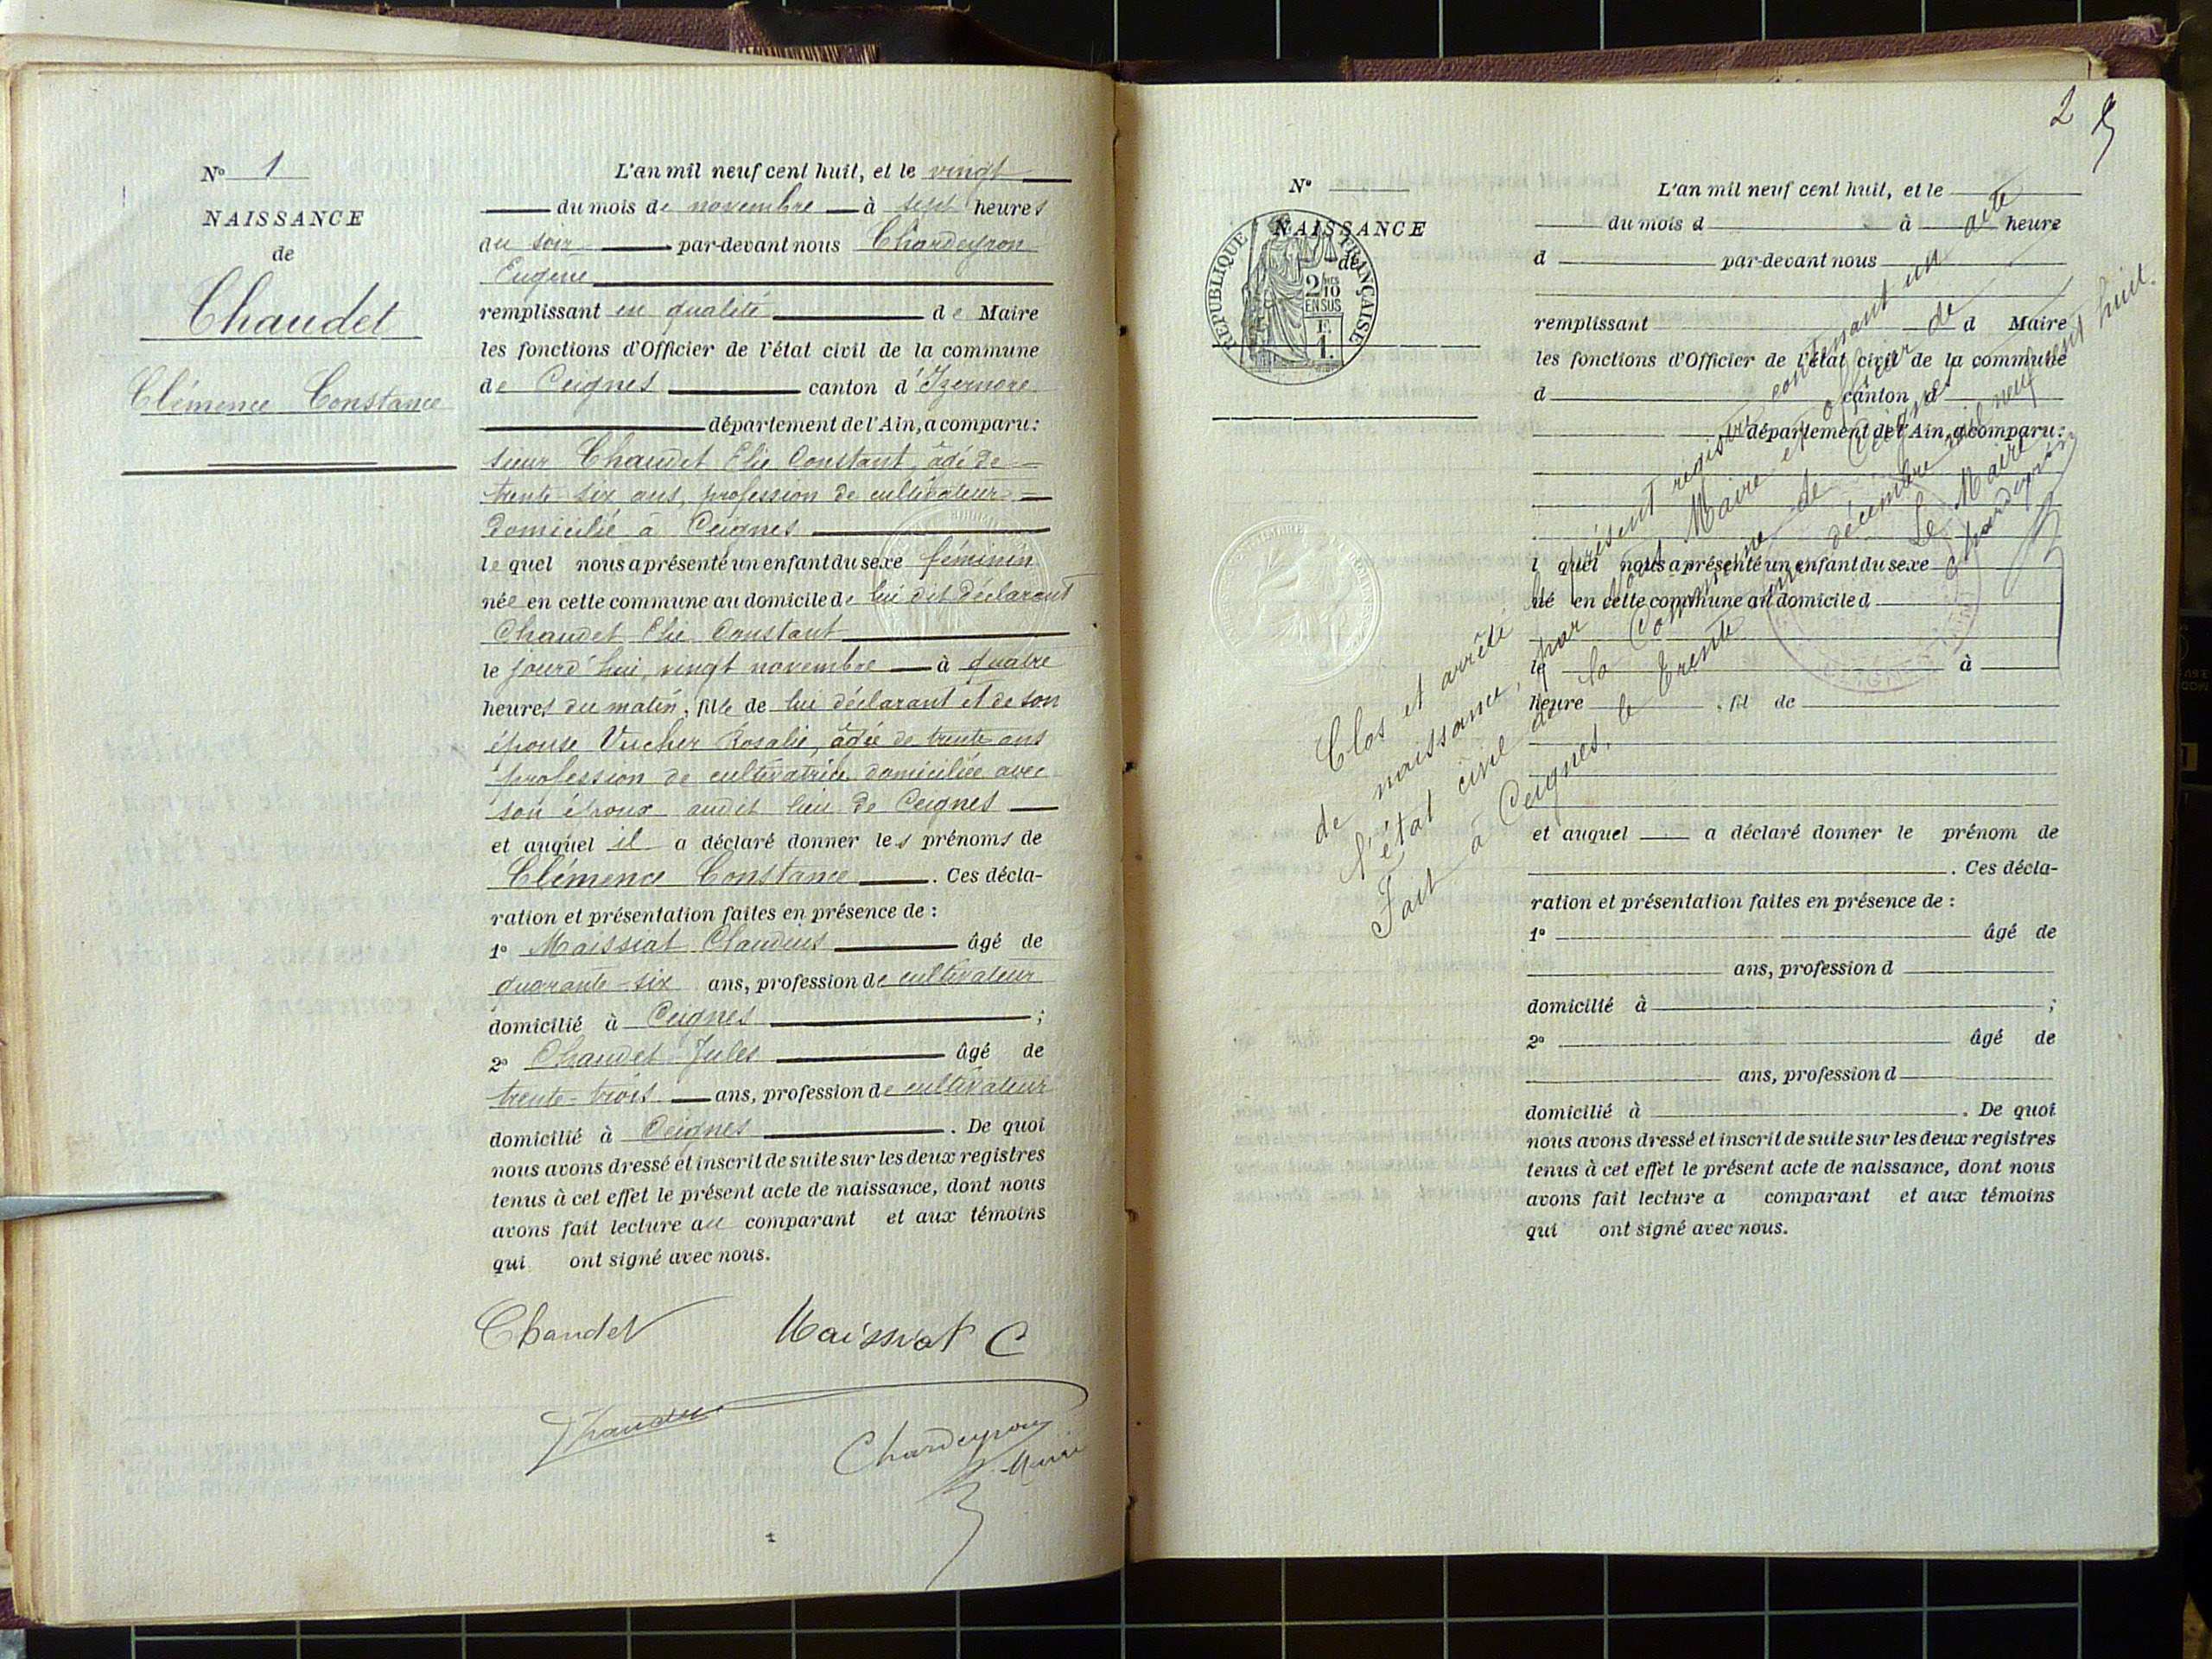 N° 1
NAISSANCE
de
Chaudet
Clémence Constance
L'an mil neuf cent huit, et le vingt
du mois de novembre à sept heures
du soir par-devant nous Chardeyron
Eugène
remplissant en qualité de Maire
les fonctions d'Officier de l'état civil de la commune
de Ceignes canton d'Izernore
département de l'Ain, a comparu:
sieur Chaudet Elie Constant, âgé de
trente six ans, profession de cultivateur
domicilié à Ceignes
le quel nous a présenté un enfant du sexe féminin
née en cette commune au domicile de lui dit déclarant
Chaudet Elie Constant
le jourd'hui, vingt novembre à quatre
heures du matin, fille de lui déclarant et de son
épouse Vucher Rosalie, âgée de trente ans
profession de cultivatrice domiciliée avec
son époux audit lieu de Ceignes
et auquel il a déclaré donner les prénoms de
Clémence Constance. Ces décla-
ration et présentation faites en présence de :
1° Maissiat Claudius âgé de
quarante-six ans, profession de cultivateur
domicilié à Ceignes ;
2° Chaudet Jules âgé de
trente-trois ans, profession de cultivateur
domicilié à Ceignes. De quoi
nous avons dressé et inscrit de suite sur les deux registres
tenus à cet effet le présent acte de naissance, dont nous
avons fait lecture au comparant et aux témoins
qui ont signé avec nous.
Chaudet Maissiat C
Chaudet
Chardeyron
Maire
2
N°
NAISSANCE
de
RÉPUBLIQUE FRANÇAISE
2/10
EN SUS
F.
1.
L'an mil neuf cent huit, et le
du mois d à heure
d par-devant nous
remplissant d Maire
les fonctions d'Officier de l'état civil de la commune
d canton d
département de l'Ain, a comparu:
l quel nous a présenté un enfant du sexe
né en cette commune au domicile d
le à
heure , fil de
et auquel a déclaré donner le prénom de
. Ces décla-
ration et présentation faites en présence de :
1° âgé de
ans, profession d
domicilié à ;
2° âgé de
ans, profession d
domicilié à . De quoi
nous avons dressé et inscrit de suite sur les deux registres
tenus à cet effet le présent acte de naissance, dont nous
avons fait lecture a comparant et aux témoins
qui ont signé avec nous.
Clos et arrêté le présent registre contenant un acte
de naissance, par Nous Maire et officier de
l'état civil de la Commune de Ceignes
Fait à Ceignes, le trente un décembre mil neuf cent huit.
Le Maire
Chardeyron